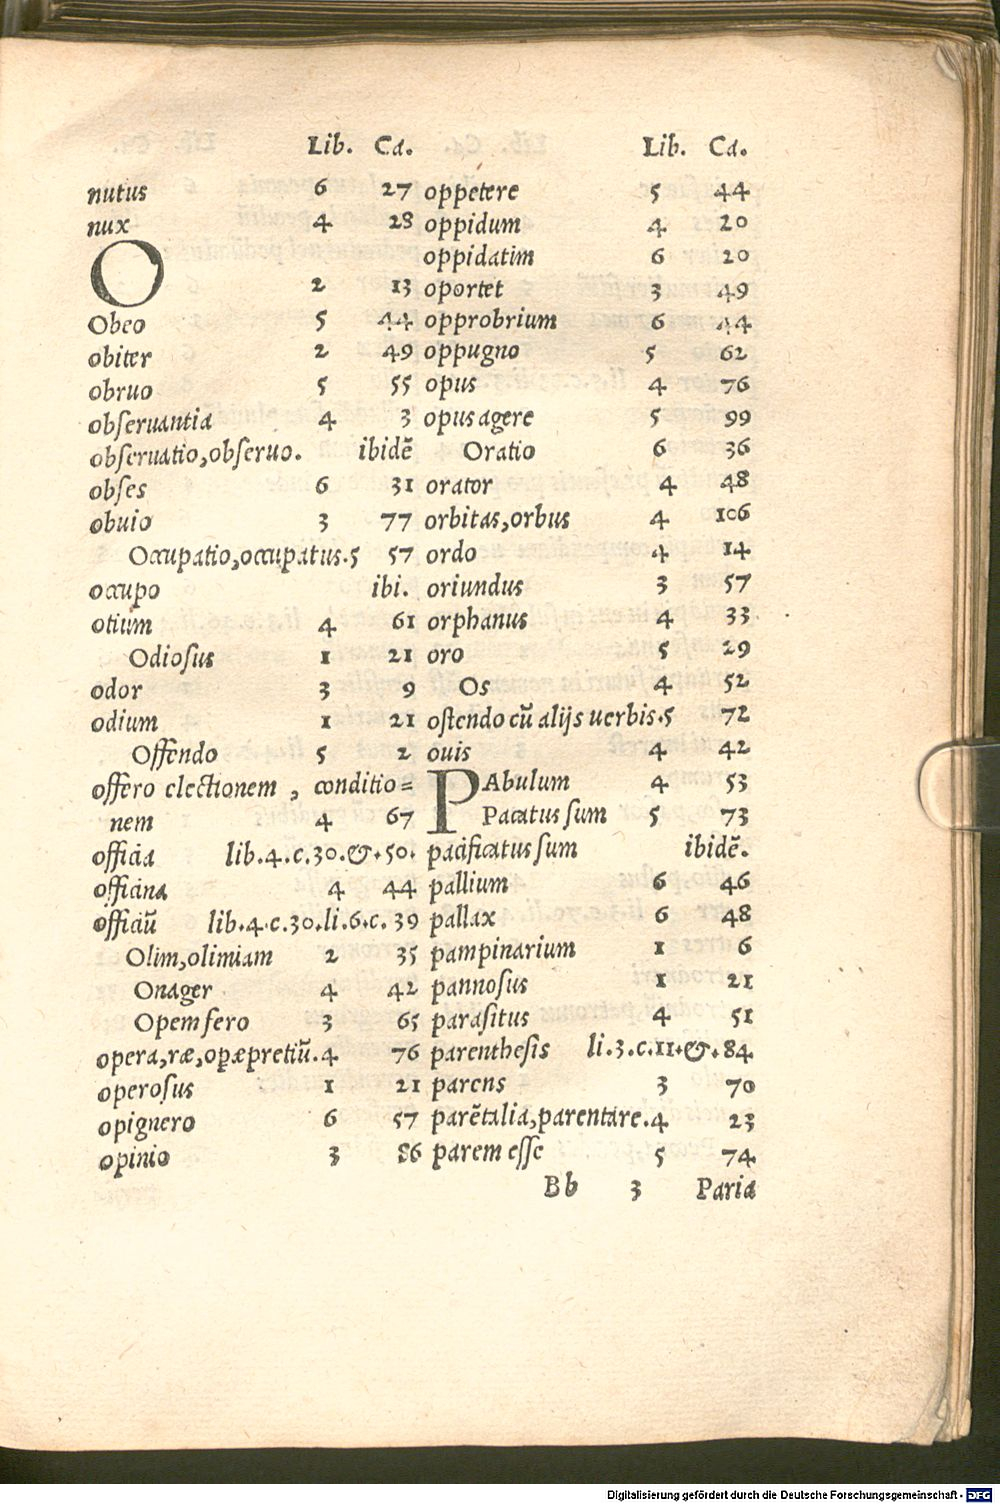 Lib. Ca.
nutus 6 27
nux 4 28
O 2 13
Obeo 5 44
obiter 2 49
obruo 5 55
obseruantia 4 3
obseruatio,obseruo. ibidē
obses 6 31
obuio 3 77
Occupatio,occupatus.5 57
occupo ibi.
otium 4 61
Odiosus 1 21
odor 3 9
odium 1 21
Offendo 5 2
offero electionem , conditio=
nem 4 67
officia lib.4.c.30.&.50.
officina 4 44
officiū lib.4.c.30.li.6.c.39
Olim,olimiam 2 35
Onager 4 42
Opem fero 3 65
opera,ræ,opæpretiū.4 76
operosus 1 21
opignero 6 57
opinio 3 86
Lib. Ca.
oppetere 5 44
oppidum 4 20
oppidatim 6 20
oportet 3 49
opprobrium 6 44
oppugno 5 62
opus 4 76
opus agere 5 99
Oratio 6 36
orator 4 48
orbitas,orbus 4 106
ordo 4 14
oriundus 3 57
orphanus 4 33
oro 5 29
Os 4 52
ostendo cū alijs uerbis.5 72
ouis 4 42
PAbulum 4 53
Pacatus sum 5 73
pacificatus sum ibidē.
pallium 6 46
pallax 6 48
pampinarium 1 6
pannosus 1 21
parasitus 4 51
parenthesis li.3.c.11.&.84
parens 3 70
parētalia,parentare.4 23
parem esse 5 74
Bb 3 Paria
Digitalisierung gefördert durch die Deutsche Forschungsgemeinschaft - DFG